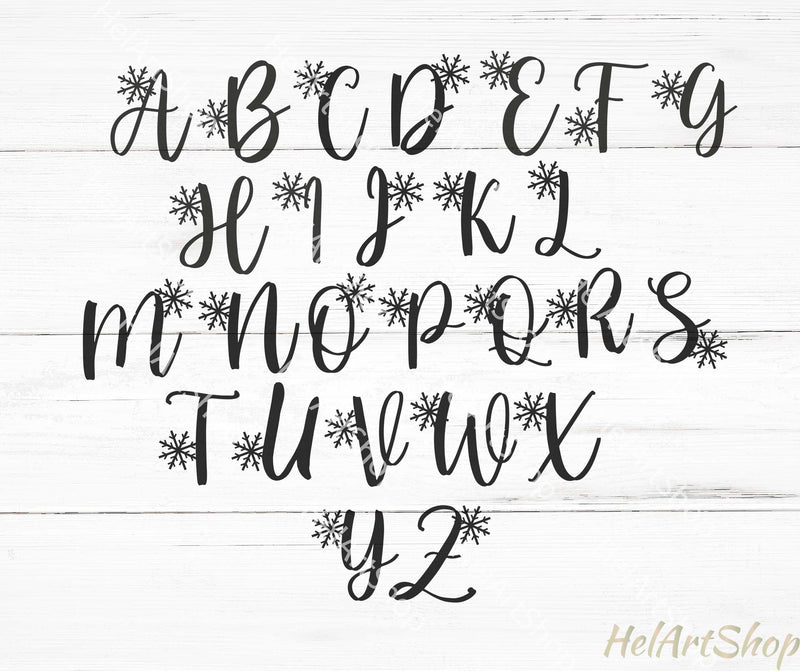 A B C D E F G
H I J K L
M N O P Q R S
T U V W X
Y Z
HelArtShop